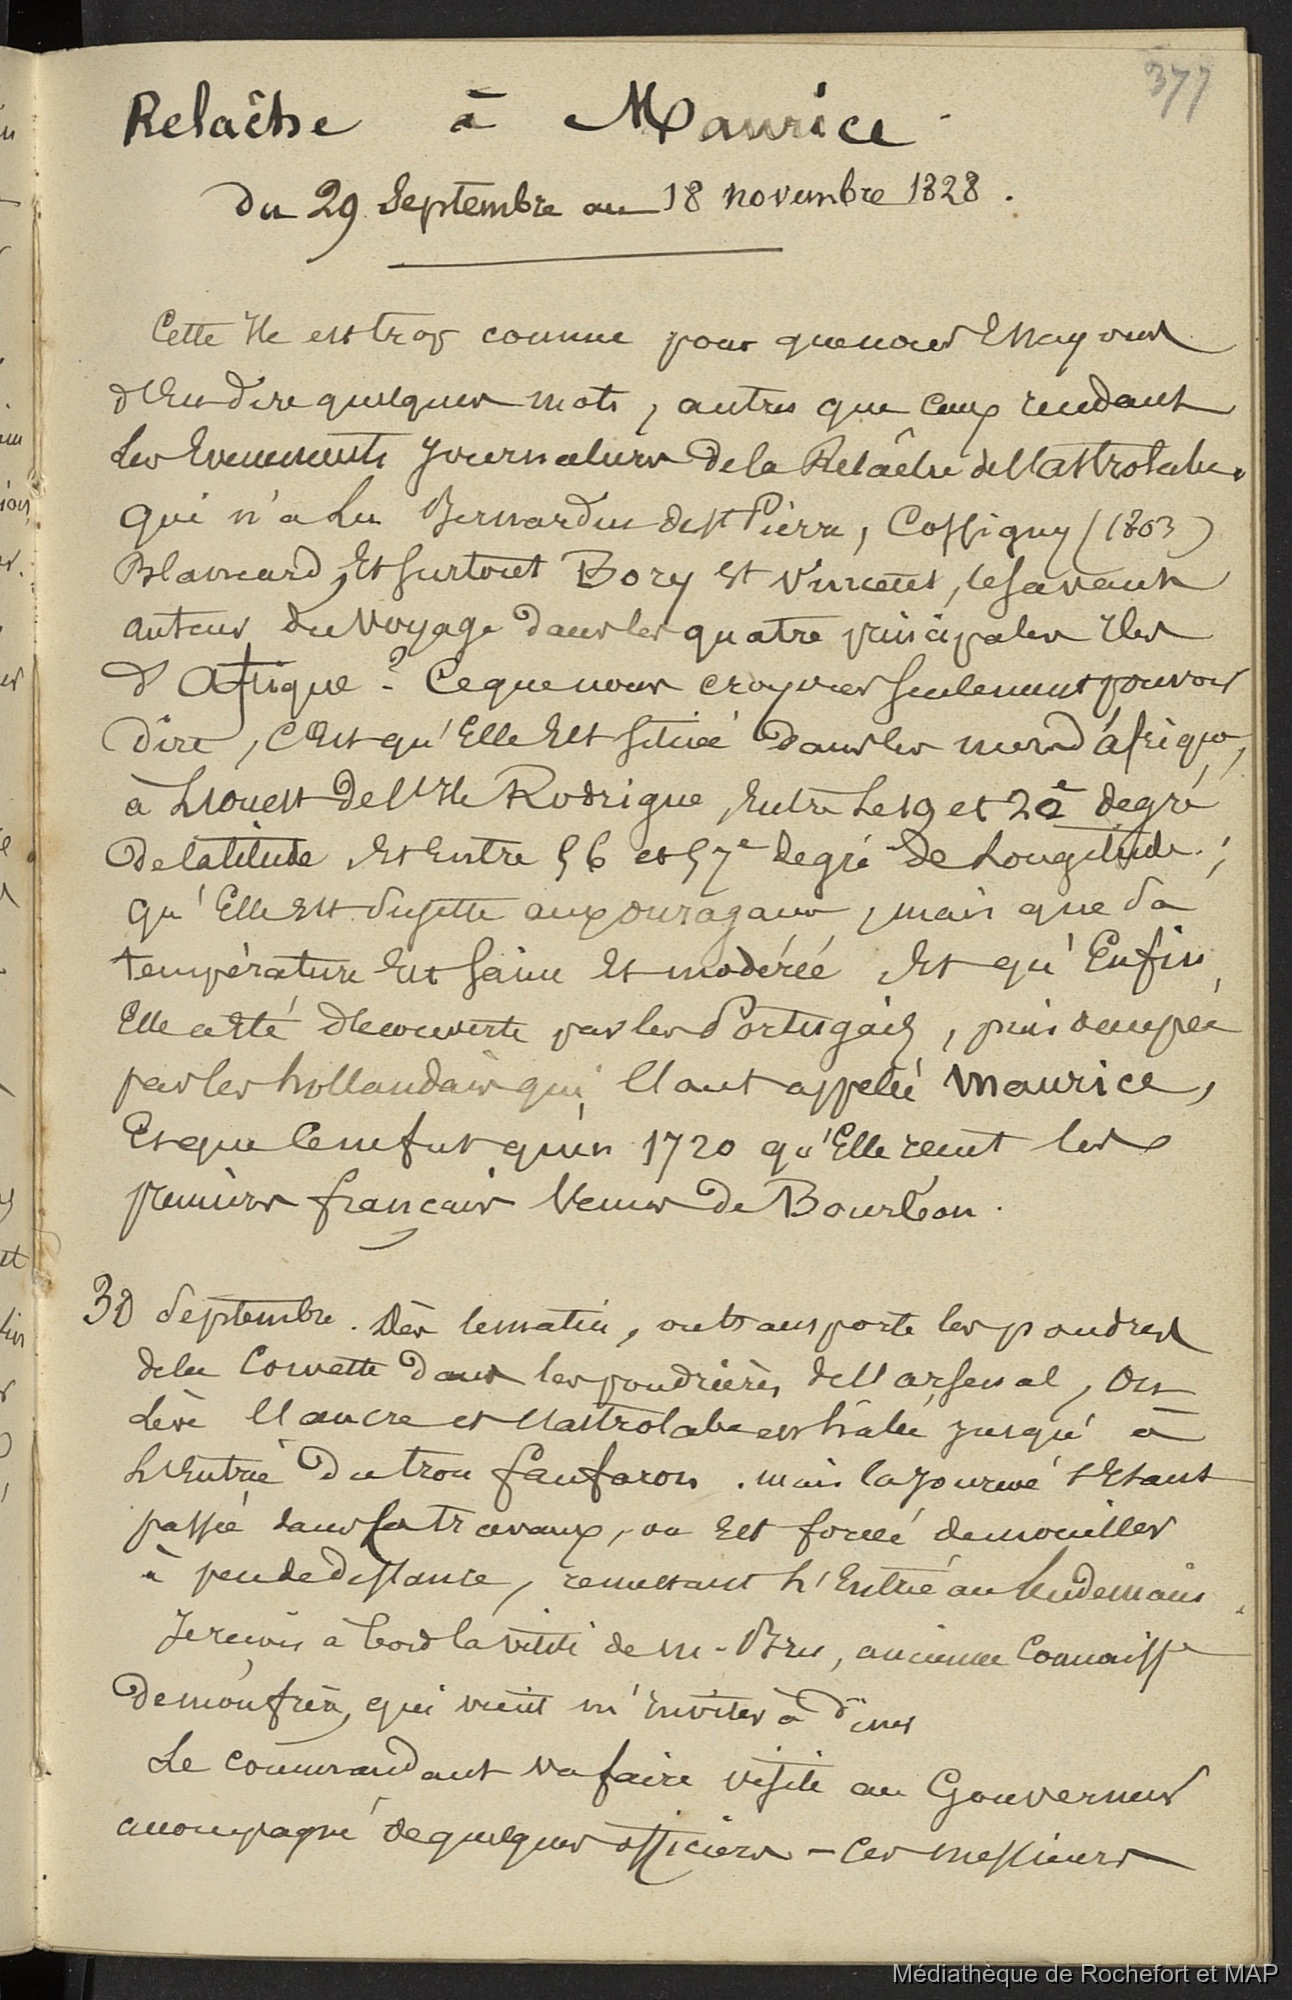 377
Relâche à Maurice
du 29 Septembre au 18 novembre 1828.
Cette Ile est trop connue pour que nous Essayons
d'En dire quelques mots, autres que ceux rendant
Les Evenements journaliers de la Relâche de l'astrolabe.
Qui n'a Lu Bernardin de St Pierre, Cossigny (1803)
Blancard, Et surtout Bory St Vincent, le savant
auteur du Voyage dans les quatre principales Iles
d'Afrique ? Ce que nous croyons seulement pouvoir
dire, c'Est qu'Elle Est située dans les mers d'afrique,
à L'ouest de l'Ile Rodrigue, Entre Le 19 et 20e degré
de latitude Et Entre 56 et 57e degré de Longitude ;
qu'Elle Est sujette aux ouragans, mais que sa
température Est saine Et modérée Et qu'Enfin
Elle a Eté découverte par les Portugais, puis occupée
par les hollandais qui l'ont appelée Maurice,
Et que ce ne fut qu'en 1720 qu'Elle reçut les
premiers français Venus de Bourbon.
30 Septembre. Dès le matin, on transporte les poudres
de la Corvette dans les poudrières de l'arsenal, On
Lève l'ancre et l'astrolabe est halée jusqu'à
L'Entrée du trou fanfaron. mais la journée s'Etant
passée dans ces travaux, on Est forcé de mouiller
à peu de distance, remettant L'Entrée au Lendemain.
Je reçois à bord la visite de m. Bru, ancienne Connaissce
de mon frère, qui vient m'Inviter à diner
Le commandant va faire visite au Gouverneur
accompagné de quelques officiers - Ces messieurs
Médiathèque de Rochefort et MAP